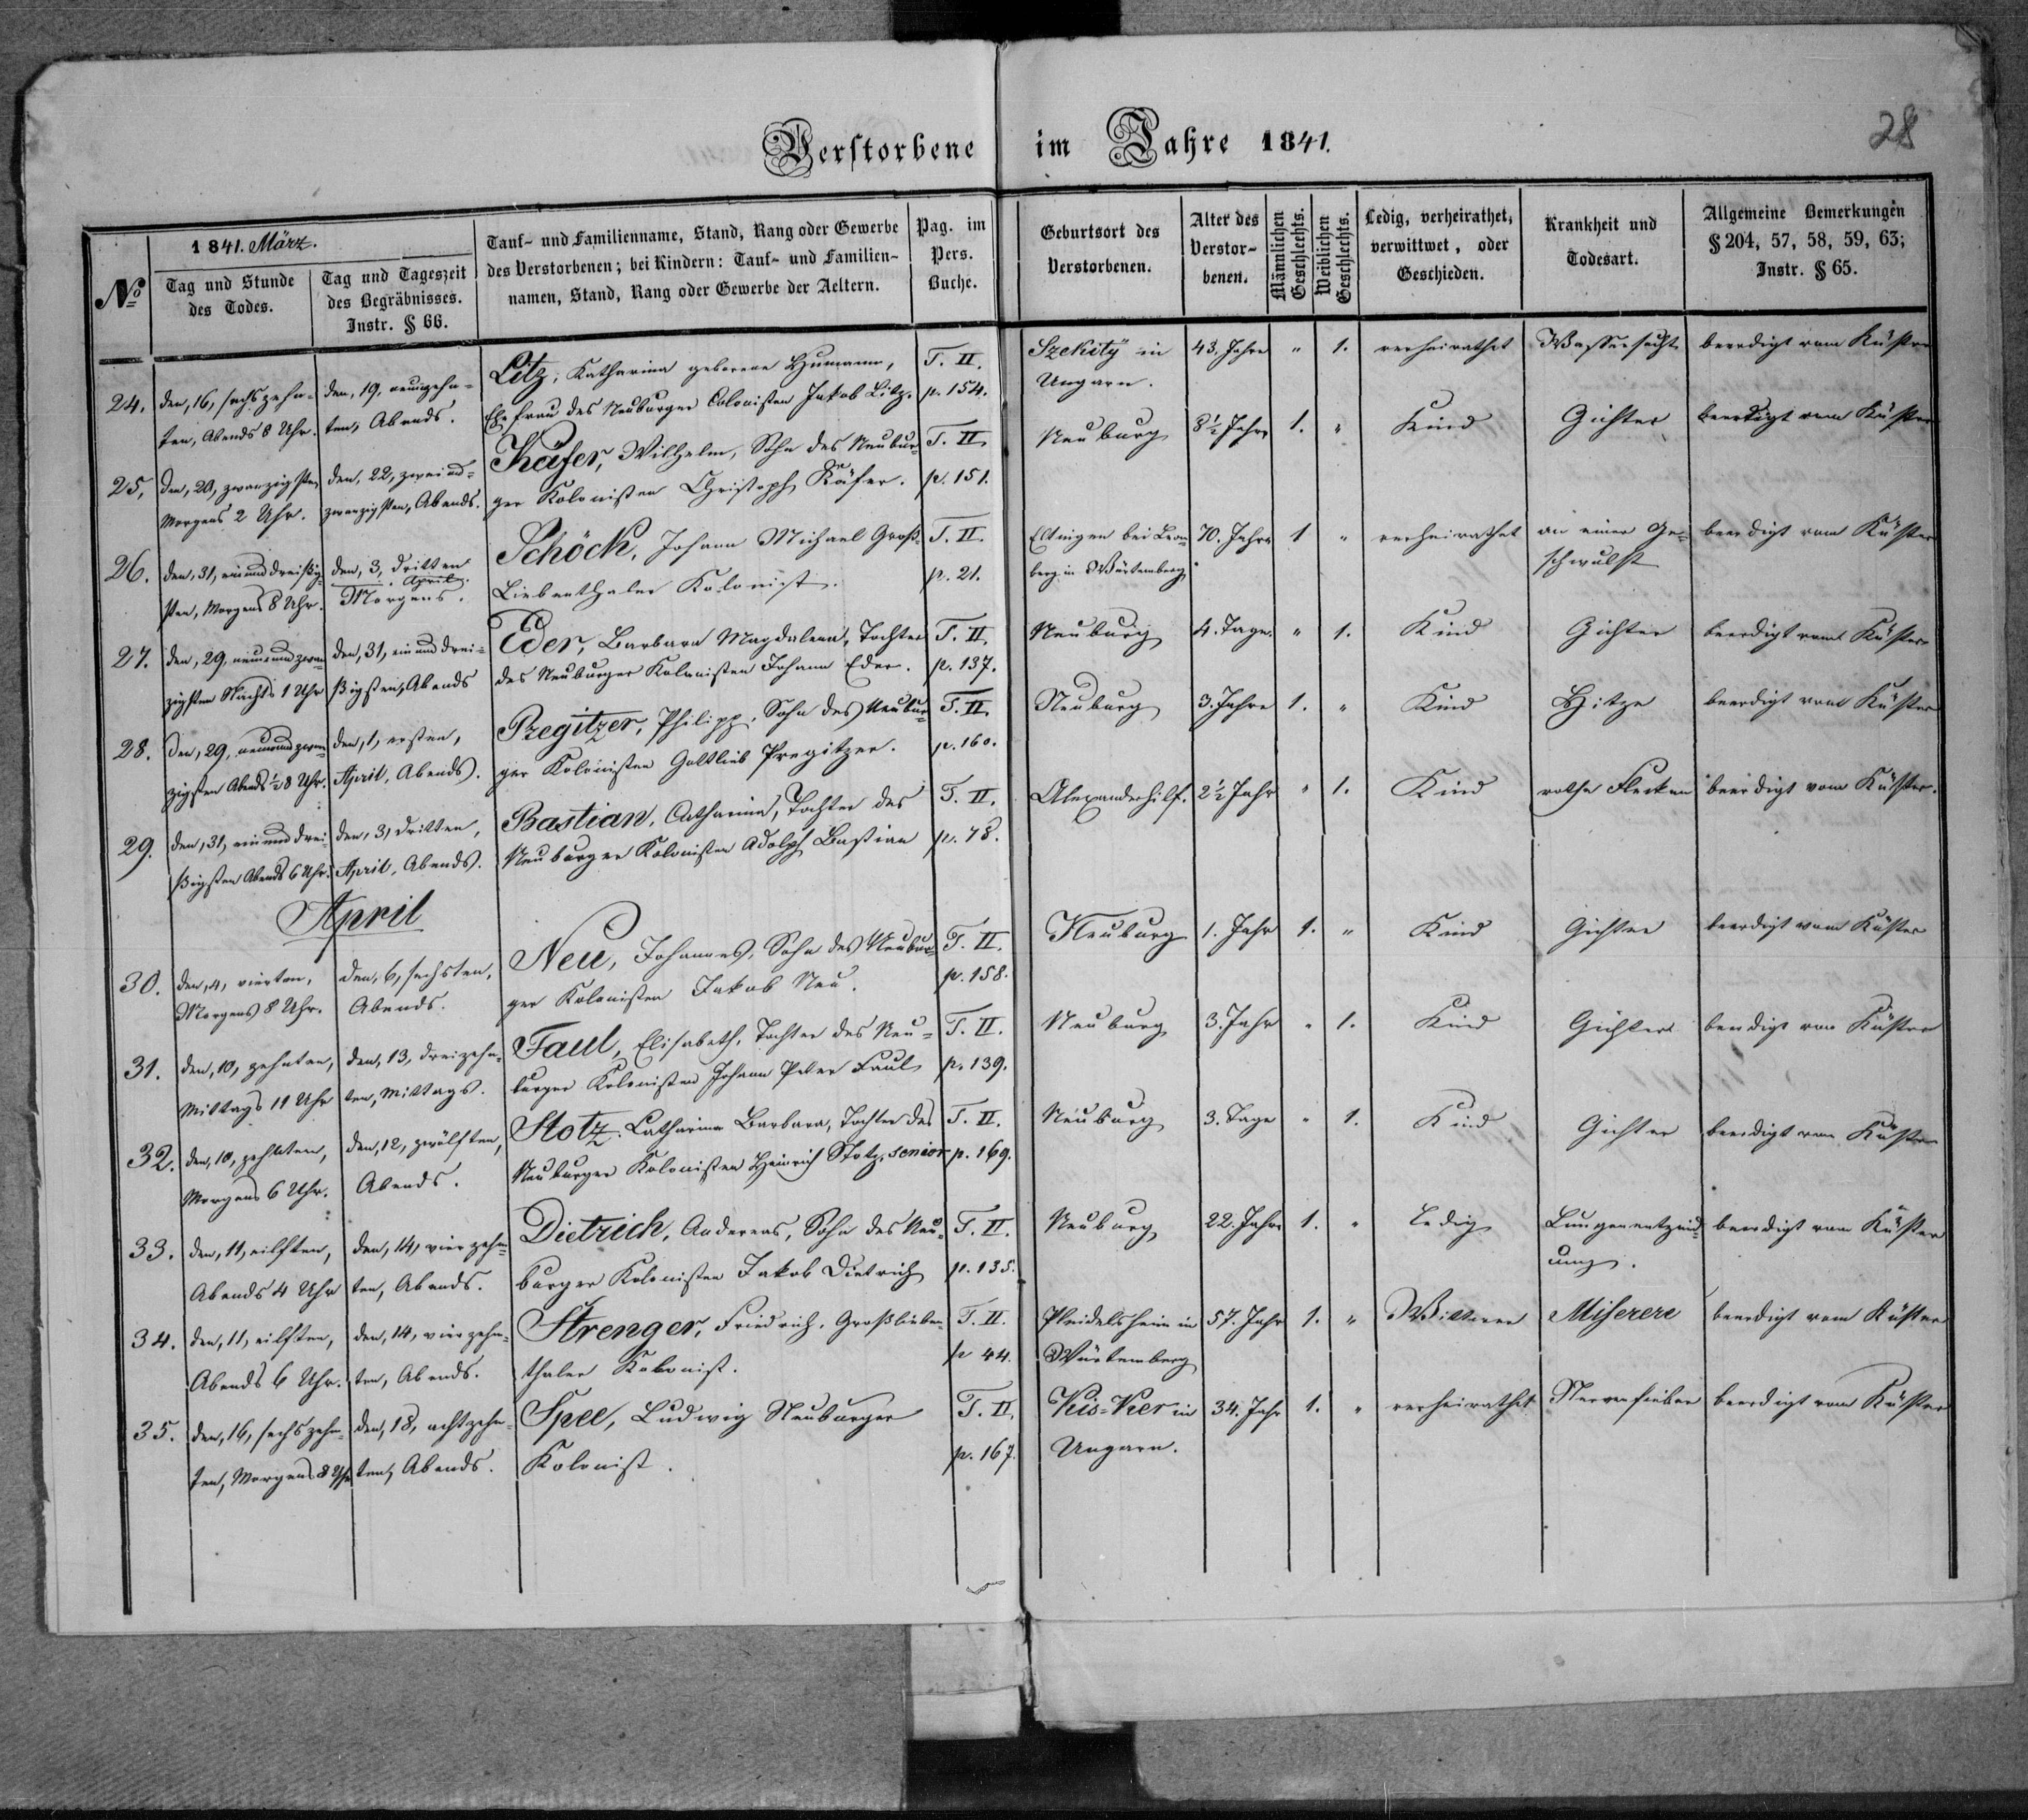 Verstorbene im Jahre 1841.
28
1841. März.
№
Tag und Stunde des Todes.
Tag und Tageszeit des Begräbnisses. Instr. § 66.
Tauf- und Familienname, Stand, Rang oder Gewerbe
des Verstorbenen; bei Kindern: Tauf- und Familien-
namen, Stand, Rang oder Gewerbe der Aeltern.
Pag. im Pers. Buche.
Geburtsort des Verstorbenen.
Alter des Verstor- benen.
Männlichen Geschlechts.
Weiblichen Geschlechts.
Ledig, verheirathet, verwittwet, oder Geschieden.
Krankheit und Todesart.
Allgemeine Bemerkungen § 204, 57, 58, 59, 63; Instr. § 65.
24. den, 16, sechszehn- den, 19, neunzehn- Litz, Katharina geborene Humann, T. II. Szekity in 43. Jahre " 1. verheirathet Wassersucht beerdigt vom Küster
ten, Abends 8 Uhr. ten, Abends. Ehefrau des Neuburger Colonisten Jakob Litz. p. 154. Ungarn.
25. den, 20, zwanzigsten den, 22, zweiund- Käfer, Wilhelm, Sohn des Neubur- T. II. Neuburg 8½ Jahre 1. " Kind Gichter beerdigt vom Küster
Morgens 2 Uhr. zwanzigsten, Abends. ger Kolonisten Christoph Käfer. p. 151.
26. den, 31, einunddreißig- den, 3, dritten April Schöck, Johann Michael Groß- T. II. Eltingen bei Leon- 70. Jahre 1 " verheirathet an einer Ge- beerdigt vom Küster
sten, Morgens 8 Uhr. Morgens. Liebenthaler Kolonist. p. 21. berg in Würtemberg schwulst
27. den, 29, neunundzwan- den, 31, ein und drei- Eder, Barbara Magdalena, Tochter T. II. Neuburg 4. Tage. " 1. Kind Gichter beerdigt vom Küster
zigsten Nachts 1 Uhr ßigsten, Abends des Neuburger Kolonisten Johann Eder. p. 137.
28. den, 29, neunundzwan- den, 1, ersten, Pregitzer, Philipp, Sohn des Neubur- T. II. Neuburg 3. Jahre 1. " Kind Hitze beerdigt vom Küster
zigsten Abends ½8 Uhr. April, Abends. ger Kolonisten Gottlieb Pregitzer. p. 160.
29. den, 31, einunddrei- den, 3, dritten, Bastian, Catharina, Tochter des T. II. Alexanderhilf. 2½ Jahr " 1. Kind rothe Flecken beerdigt vom Küster.
ßigsten Abends 6 Uhr. April, Abends. Neuburger Kolonisten Adolph Bastian p. 78.
April
30. den, 4, vierten, den, 6, sechsten, Neu, Johannes, Sohn des Neubur- T. II. Neuburg 1. Jahr 1. " Kind Gichter beerdigt vom Küster
Morgens 8 Uhr. Abends. ger Kolonisten Jakob Neu. p. 158.
31. den, 10, zehnten, den, 13, dreizehn- Faul, Elisabeth, Tochter des Neu- T. II. Neuburg 3. Jahr " 1. Kind Gichter beerdigt vom Küster
Mittags 11 Uhr ten, Mittags. burger Kolonisten Johann Peter Faul p. 139.
32. den, 10, zehnten, den, 12, zwölften, Stotz, Catharina Barbara, Tochter des T. II. Neuburg 3. Tage " 1. Kind Gichter beerdigt vom Küster
Morgens 6 Uhr. Abends. Neuburger Kolonisten Heinrich Stotz, senior p. 169.
33. den, 11, eilften, den, 14, vierzehn- Dietrich, Andereas, Sohn des Neu- T. II. Neuburg 22. Jahre 1. " Ledig Lungenentzünd- beerdigt vom Küster
Abends 4 Uhr ten, Abends. burger Kolonisten Jakob Dietrich p. 135. ung.
34. den, 11, eilften, den, 14, vierzehn- Strenger, Friedrich, Großlieben- T. II. Pleidelsheim in 57. Jahr 1. " Wittwer Miserere beerdigt vom Küster
Abends 6 Uhr. ten, Abends. thaler Kolonist. p 44. Würtemberg
35. den, 16, sechszehn- den, 18, achtzehn- Spee, Ludwig Neuburger T. II. Kis-Ker in 34. Jahr 1. " verheirathet Nervenfieber beerdigt vom Küster
ten, Morgens 8 Uhr ten, Abends. Kolonist. p. 167. Ungarn.